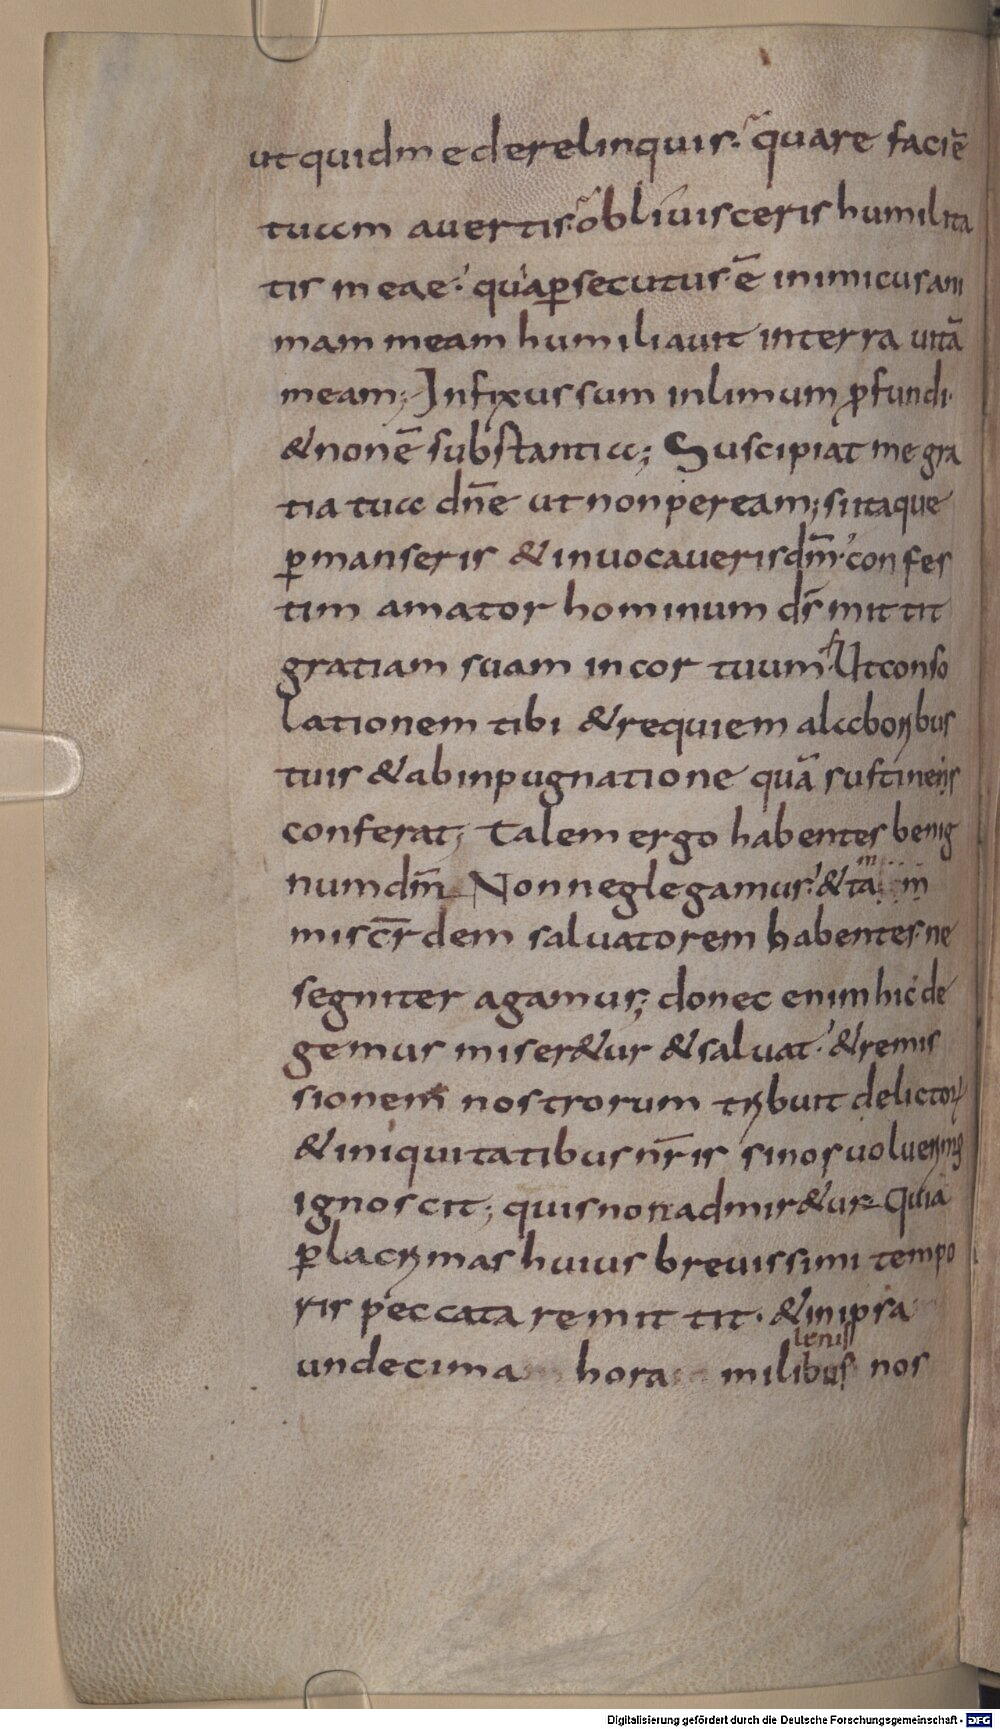 ut quid me derelinquis. quare faciē
tuam avertis. obliuisceris humilita
tis meae. quia ꝑsecutus ē inimicus ani
mam meam humiliauit interra uitā
meam; Infixus sum inlimum ꝓfundi.
& non ē substantia; Suscipiat me gra
tia tua dn̄e ut non peream; si itaque
ꝑmanseris & inuocaueris dm̄. confes
tim amator hominum ds̄ mittit
gratiam suam incor tuum. Ut conso
lationem tibi & requiem alaboribus
tuis & ab inpugnatione quā sustineris
conferat; Talem ergo habentes benig
num dm̄ Non neglegamur. & tam
misc̄rdem saluatorem habentes. ne
segniter agamus; donec enim hic de
gemus miser&ur & saluat. & remis
sionem nostrorum tribuit delictoꝝ
& iniquitatibus nr̄is si nos uoluerimus
ignoscit; quis non admir&ur. Quia
ꝑ lacrimas huius breuissimi tempo
ris peccata remittit. & in ipsa
undecima hora milibus nos
leniss
Digitalisierung gefördert durch die Deutsche Forschungsgemeinschaft - DFG